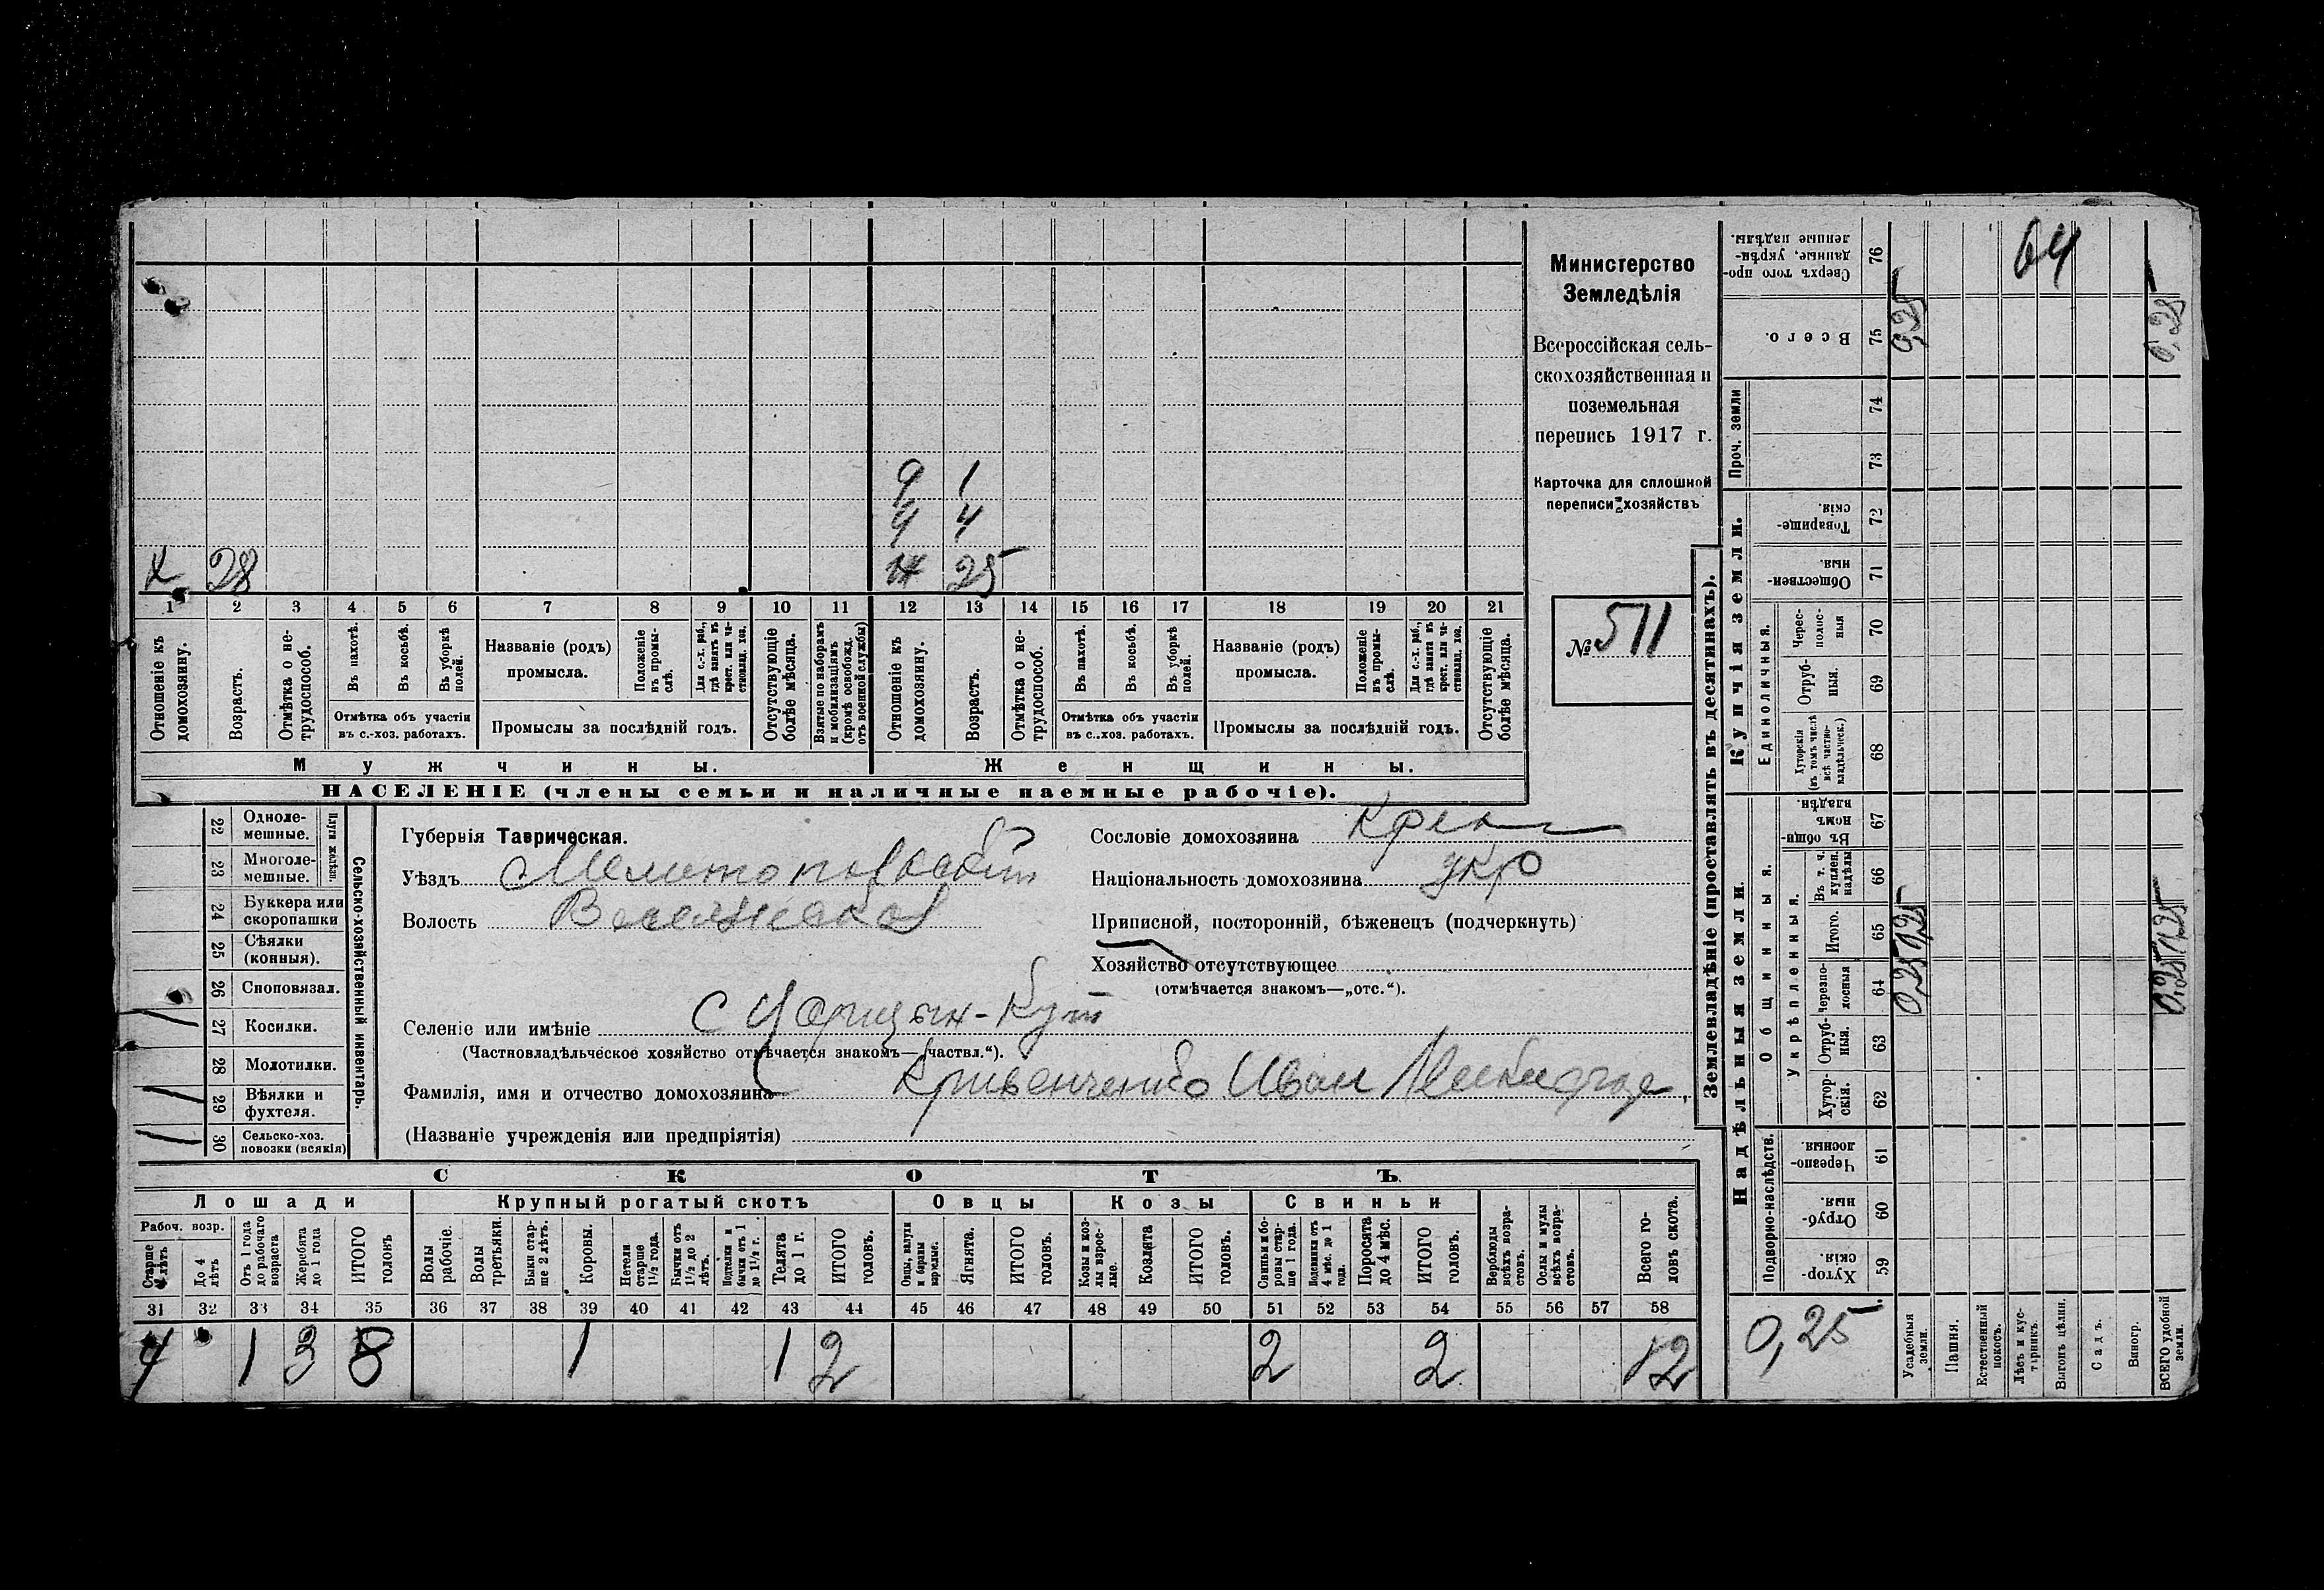 9 1
4 4
х 28
25
1 2 3 4 5 6 7 8 9 10 11 12 13 14 15 16 17 18 19 20 21
Отношеніе къ домохозяину.
Возрастъ.
Отмѣтка о не-трудоспособ.
Въ пахотѣ.
Въ косьбѣ.
Въ уборкѣ полей.
Отмѣтка объ участіи въ с.-хоз. работахъ.
Названіе (родъ) промысла.
Положеніе въ промы-слѣ.
Для с.-х. раб., гдѣ занятъ въ крест. или ча-стновлад. хоз.
Промыслы за послѣдній годъ.
Отсутствующіе болѣе мѣсяца.
Взятые по наборамъ и мобилизаціямъ (кромѣ освобожд. отъ военной службы)
Отношеніе къ домохозяину.
Возрастъ.
Отмѣтка о не-трудоспособ.
Въ пахотѣ.
Въ косьбѣ.
Въ уборкѣ полей.
Отмѣтка объ участіи въ с.-хоз. работахъ.
Названіе (родъ) промысла.
Положеніе въ промы-слѣ.
Для с.-х. раб., гдѣ занята въ крест. или ча-стновлад. хоз.
Промыслы за послѣдній годъ.
Отсутствующіе болѣе мѣсяца.
Мужчины.
Женщины.
НАСЕЛЕНІЕ (члены семьи и наличные наемные рабочіе).
Министерство
Земледѣлія
Всероссійская сель-
скохозяйственная и
поземельная
перепись 1917 г.
Карточка для сплошной
переписи хозяйствъ
№ 511
22 Одноле-мешные.
23 Многоле-мешные.
Плуги желѣзн.
24 Буккера или скоропашки
25 Сѣялки (конныя).
26 Сноповязал.
27 Косилки.
28 Молотилки.
29 Вѣялки и фухтеля.
30 Сельско-хоз. повозки (всякія)
Сельско-хозяйственный инвентарь.
Губернія Таврическая.
Уѣздъ Мелитопольскій
Волость Веселянская
Селеніе или имѣніе с Царицын-Кут
(Частновладѣльческое хозяйство отмѣчается знакомъ—„частвл.“).
Фамилія, имя и отчество домохозяина Кривенченко Иван
(Названіе учрежденія или предпріятія)
Сословіе домохозяина
Національность домохозяина укр
Приписной, посторонній, бѣженецъ (подчеркнуть)
Хозяйство отсутствующее
(отмѣчается знакомъ—„отс.“).
СКОТЪ
Лошади
Крупный рогатый скотъ
Овцы
Козы
Свиньи
Рабоч. возр.
Старше 4 лѣтъ
До 4 лѣтъ
Отъ 1 года до рабочаго возраста
Жеребята до 1 года
ИТОГО головъ
Волы рабочіе.
Волы третьяки.
Быки стар-ше 2 лѣтъ.
Коровы.
Нетели старше 1½ года.
Бычки отъ 1½ до 2 лѣтъ.
Подтелки и бычки отъ 1 до 1½ г.
Телята до 1 г.
ИТОГО головъ.
Овцы, валухи и бараны взрослые.
Ягнята.
ИТОГО головъ.
Козы и коз-лы взрос-лые.
Козлята
ИТОГО головъ.
Свиньи и бо-ровы стар-ше 1 года.
Подсвинки отъ 4 мѣс. до 1 года.
Поросята до 4 мѣс.
ИТОГО головъ.
Верблюды всѣхъ возра-стовъ.
Ослы и мулы всѣхъ возра-стовъ.
Всего го-ловъ скота.
31 32 33 34 35 36 37 38 39 40 41 42 43 44 45 46 47 48 49 50 51 52 53 54 55 56 57 58
4 1 3 8 1 1 2 2 2 12
Землевладѣніе (проставлять въ десятинахъ).
Надѣльныя земли.
Купчія земли.
Проч. земли
Подворно-наслѣдств.
Общинныя.
Укрѣпленныя.
Единоличныя.
Сверхъ того про-данные, укрѣп-ленные надѣлы. 76
Всего. 75
74
73
Товарище-скія. 72
Обществен-ныя. 71
Черес-полос-ныя 70
Отруб-ныя. 69
Хуторскія (въ томъ числѣ всѣ частно-владѣльческ.) 68
Въ общи-номъ владѣн. 67
Въ т. ч. куплен. надѣлы 66
Итого. 65
Черезпо-лосныя 64
Отруб-ныя. 63
Хутор-скія. 62
Черезпо-лосныя 61
Отруб-ныя. 60
Хутор-скія. 59
64
0,25
0,25
0,25
0,25
0,25
0,25
0,25
Усадебныя земли.
Пашня.
Естественный покосъ.
Лѣсъ и кус-тарникъ.
Выгонъ цѣлин.
Садъ.
Виногр.
ВСЕГО удобной земли.